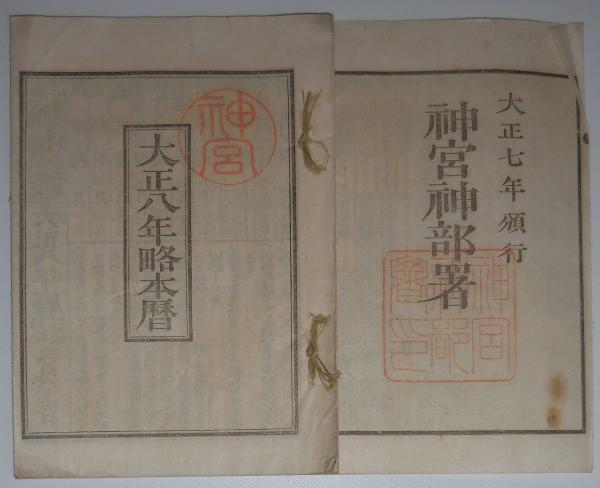 神宮
大正八年略本暦
大正七年頒行
神宮神部署
神宮神部署印